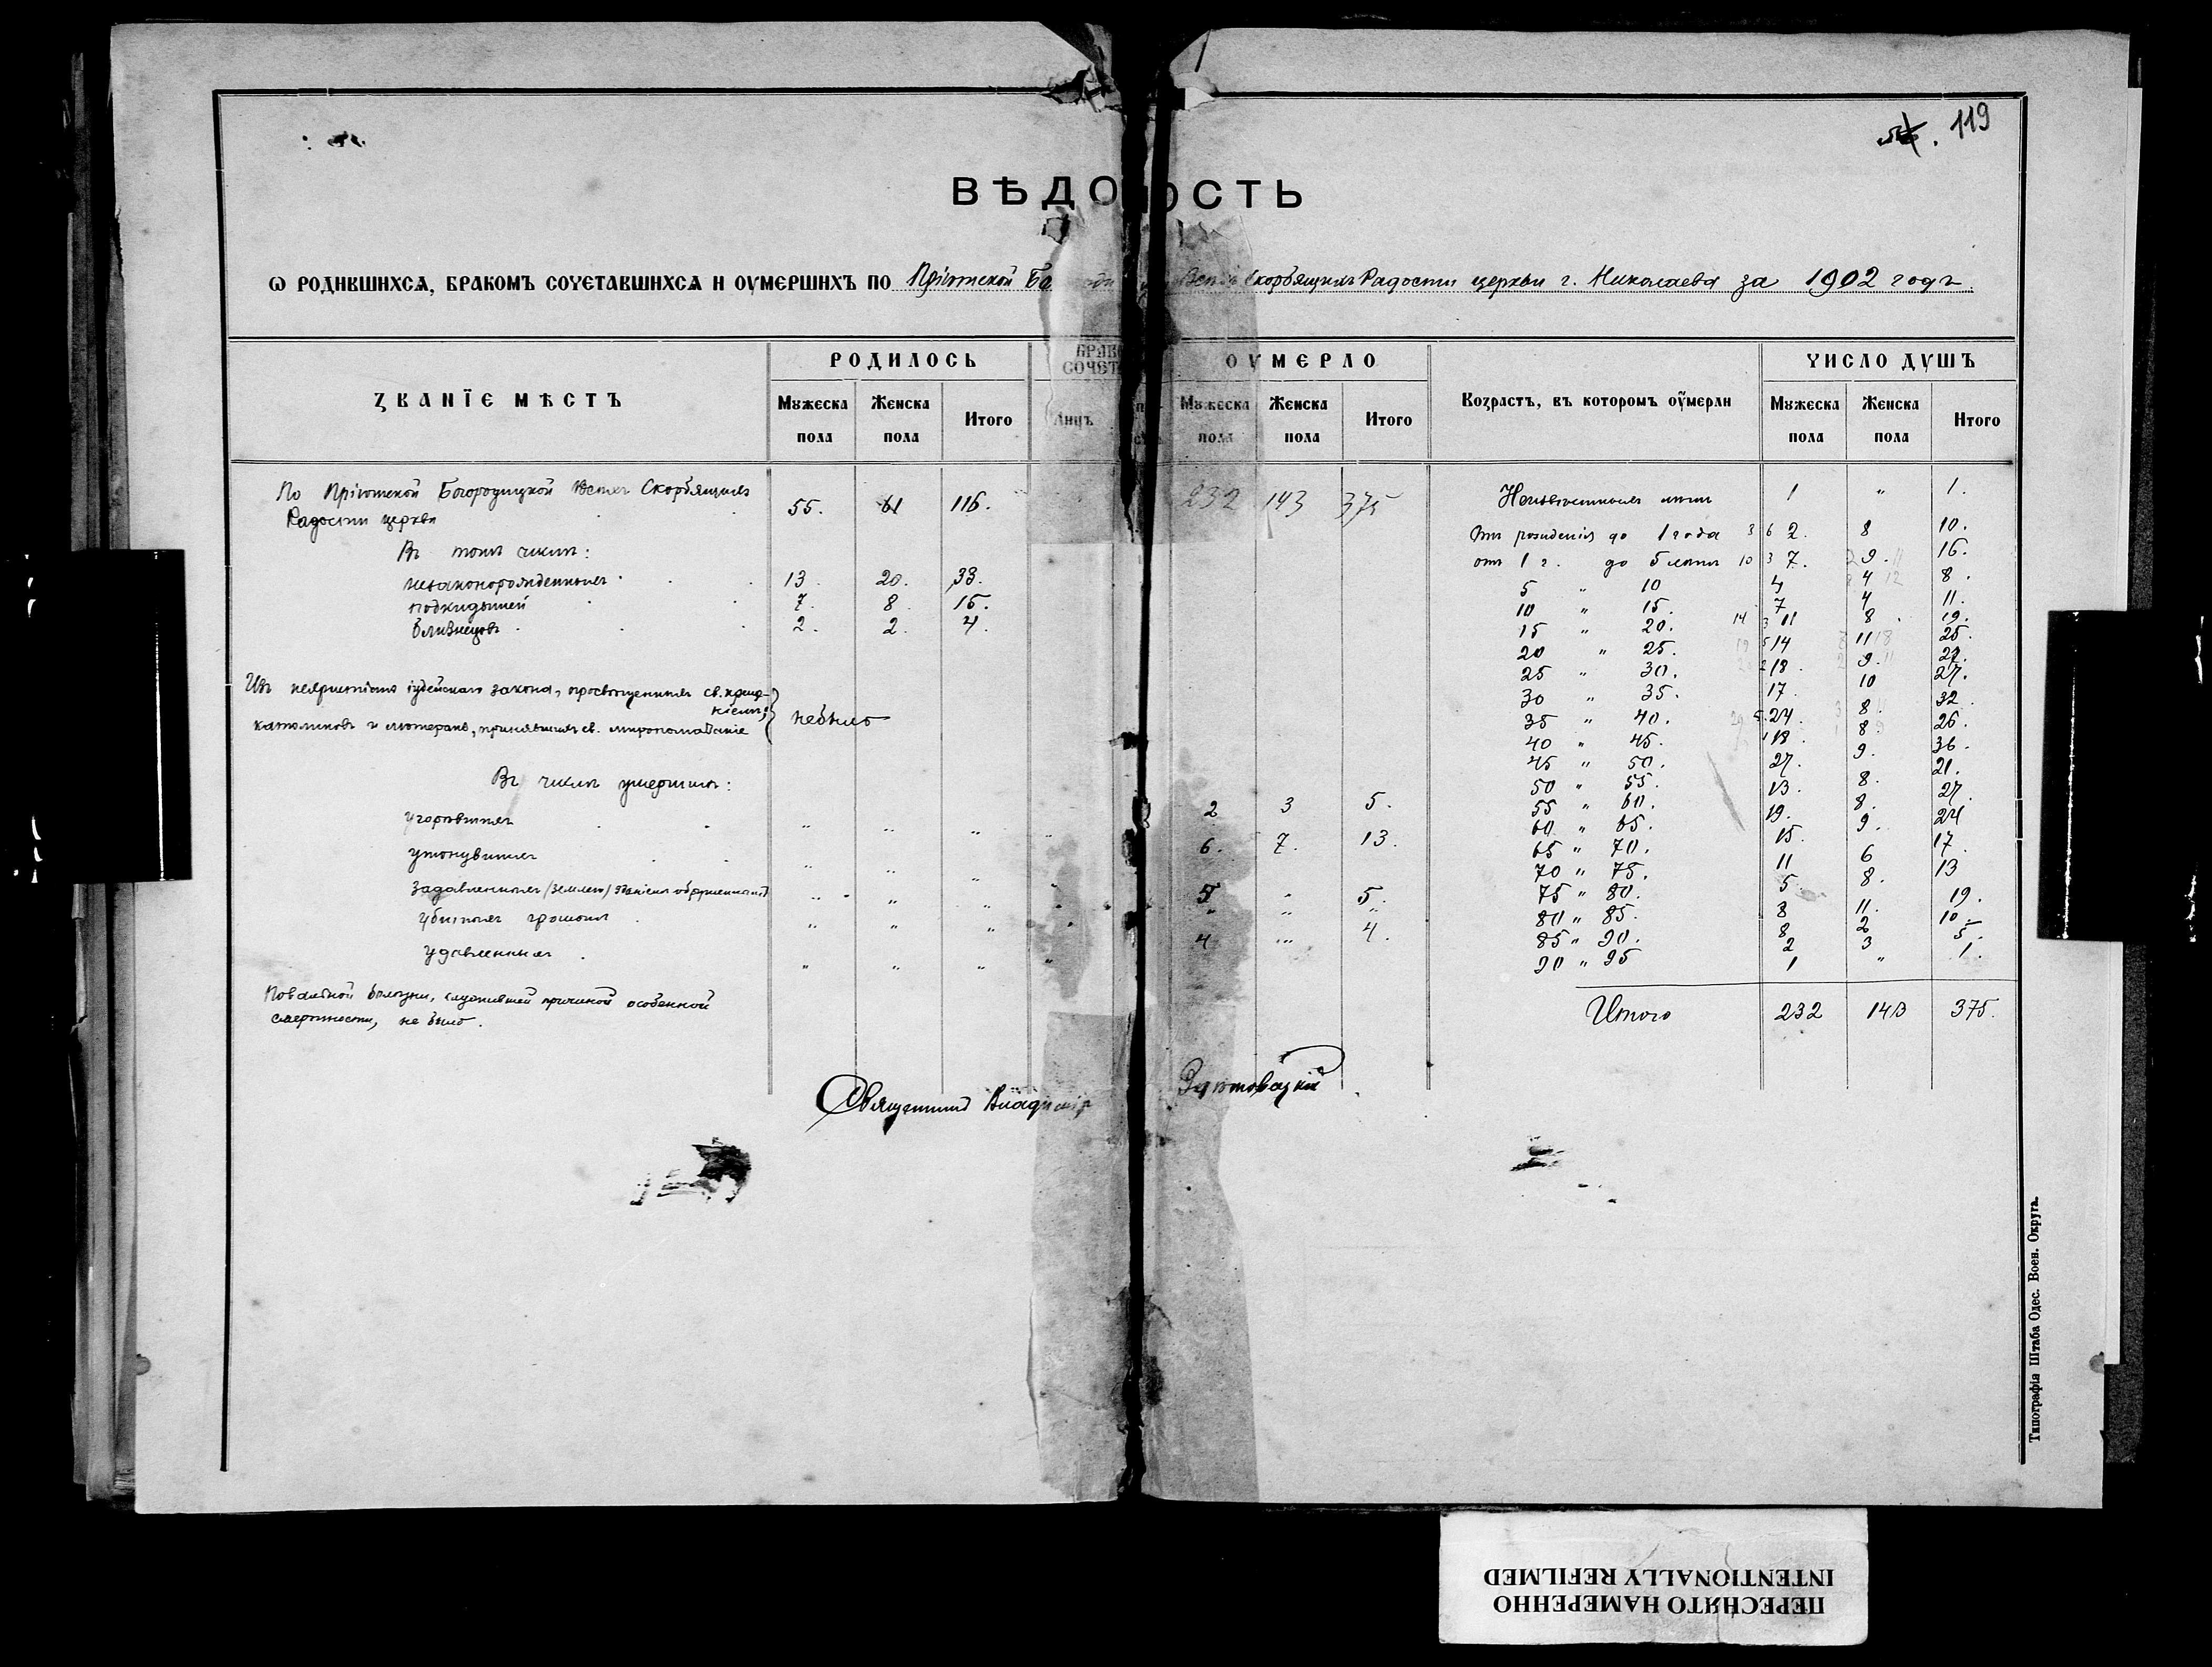 119
ВѢДО ОСТЬ
Ѡ РОДИВШИХСѦ, БРАКОМЪ СОЧЕТАВШИХСѦ И ОУМЕРШИХЪ ПО Пріютской Бо Всѣхъ Скорбящихъ Радости церкви г. Николаева за 1902 годъ.
ЗВАНЇЕ МѢСТЪ
РОДИЛОСЬ
БРАК СОЧЕТ
ОУМЕРЛО
Возрастъ, въ которомъ оумерли
ЧИСЛО ДУШЪ
Мужеска пола Женска пола Итого Лицъ Мужеска пола Женска пола Итого Мужеска пола Женска пола Итого
По Пріютской Богородицкой Всѣхъ Скорбящихъ
Радости церкви 55. 61 116. 232 143 375
Въ томъ числѣ:
незаконорожденныхъ 13. 20. 33.
подкидышей 7. 8. 15.
близнецовъ 2. 2. 4.
Изъ нехристіанъ іудейскаго закона, просвѣщенныхъ св. креще-
ніемъ;
католиковъ и лютеранъ, принявшихъ св. миропомазаніе } небыло
Въ числѣ умершихъ:
угорѣвшихъ " " " " 2 3 5.
утонувшихъ " " " " 6. 7. 13.
задавленныхъ /землею/ зданіемъ " " " " 5 " 5.
убитыхъ громомъ " " " " " " "
удавленныхъ " " " " 4 " 4.
Повальной болѣзни, служившей причиной особенной
смертности, не было.
Неизвѣстныхъ лѣтъ 1 " 1.
Отъ рожденія до 1 года 2. 8 10.
отъ 1 г. до 5 лѣтъ 7. 9. 16.
5 " 10 4 4 8.
10 " 15. 7 4 11.
15 " 20. 11 8 19.
20 " 25. 14 11 25.
25 " 30. 18. 9. 27.
30 " 35. 17. 10 27.
35 " 40. 24. 8 32.
40 " 45. 18. 8. 26.
45 " 50. 27. 9. 36.
50 " 55. 13. 8. 21.
55 " 60. 19. 8. 27.
60 " 65. 15. 9. 24
65 " 70. 11 6 17.
70 " 75. 5. 8. 13
75 " 80. 8 11. 19.
80 " 85. 8 2 10.
85 " 90. 2 3 5.
90 " 95 1 " 1.
Итого 232 143 375.
Священникъ Владиміръ
Типографія Штаба Одес. Воен. Округа.
ПЕРЕСНЯТО НАМЕРЕННО
INTENTIONALLY REFILMED